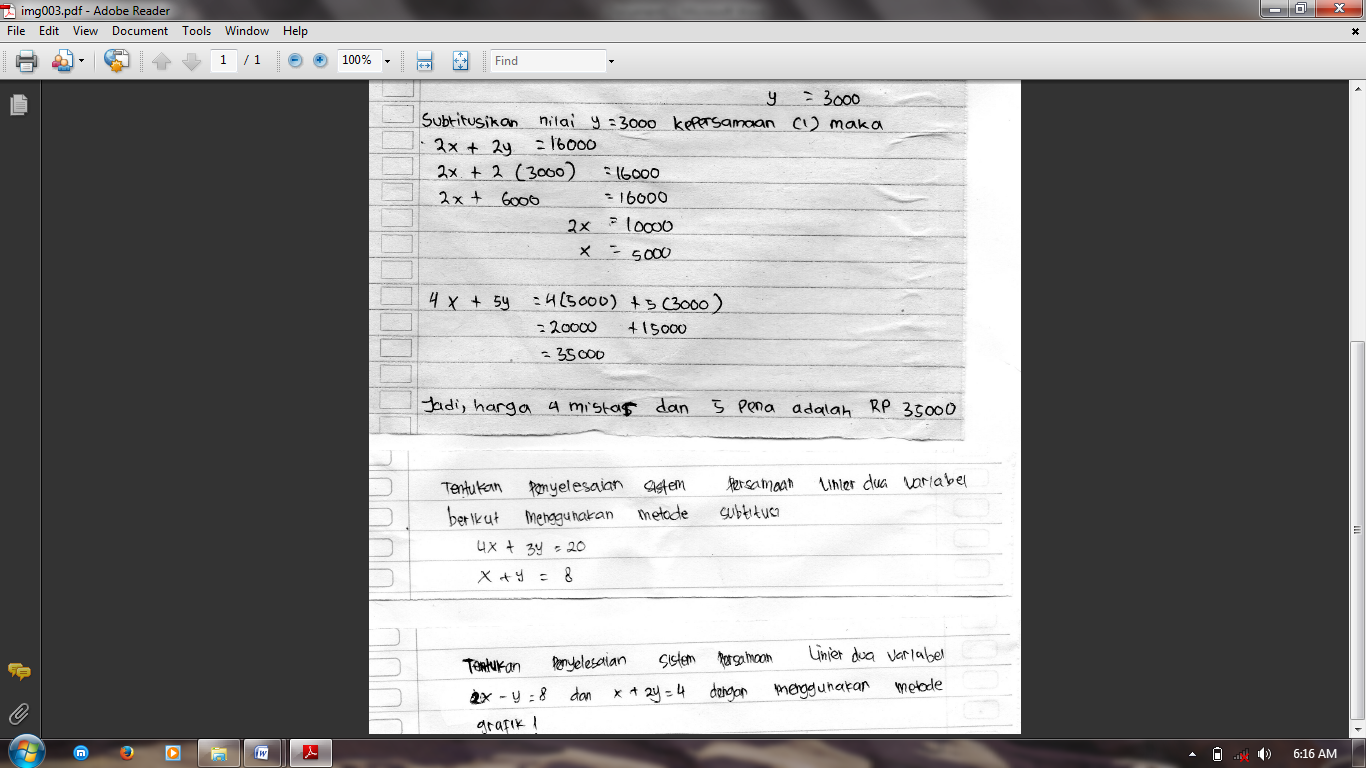 img003.pdf - Adobe Reader
File Edit View Document Tools Window Help
1 / 1 100% Find
y = 3000
Subtitusikan nilai y = 3000 kepersamaan (1) maka
2x + 2y = 16000
2x + 2 (3000) = 16000
2x + 6000 = 16000
2x = 10000
x = 5000
4x + 5y = 4(5000) + 5(3000)
= 20000 + 15000
= 35000
Jadi, harga 4 mistar dan 5 pena adalah RP 35000
Tentukan Penyelesaian sistem Persamaan Linier dua variabel
berikut menggunakan metode subtitusi
4x + 3y = 20
x + y = 8
Tentukan Penyelesaian sistem Persamaan Linier dua variabel
2x - y = 8 dan x + 2y = 4 dengan menggunakan metode
grafik !
6:16 AM